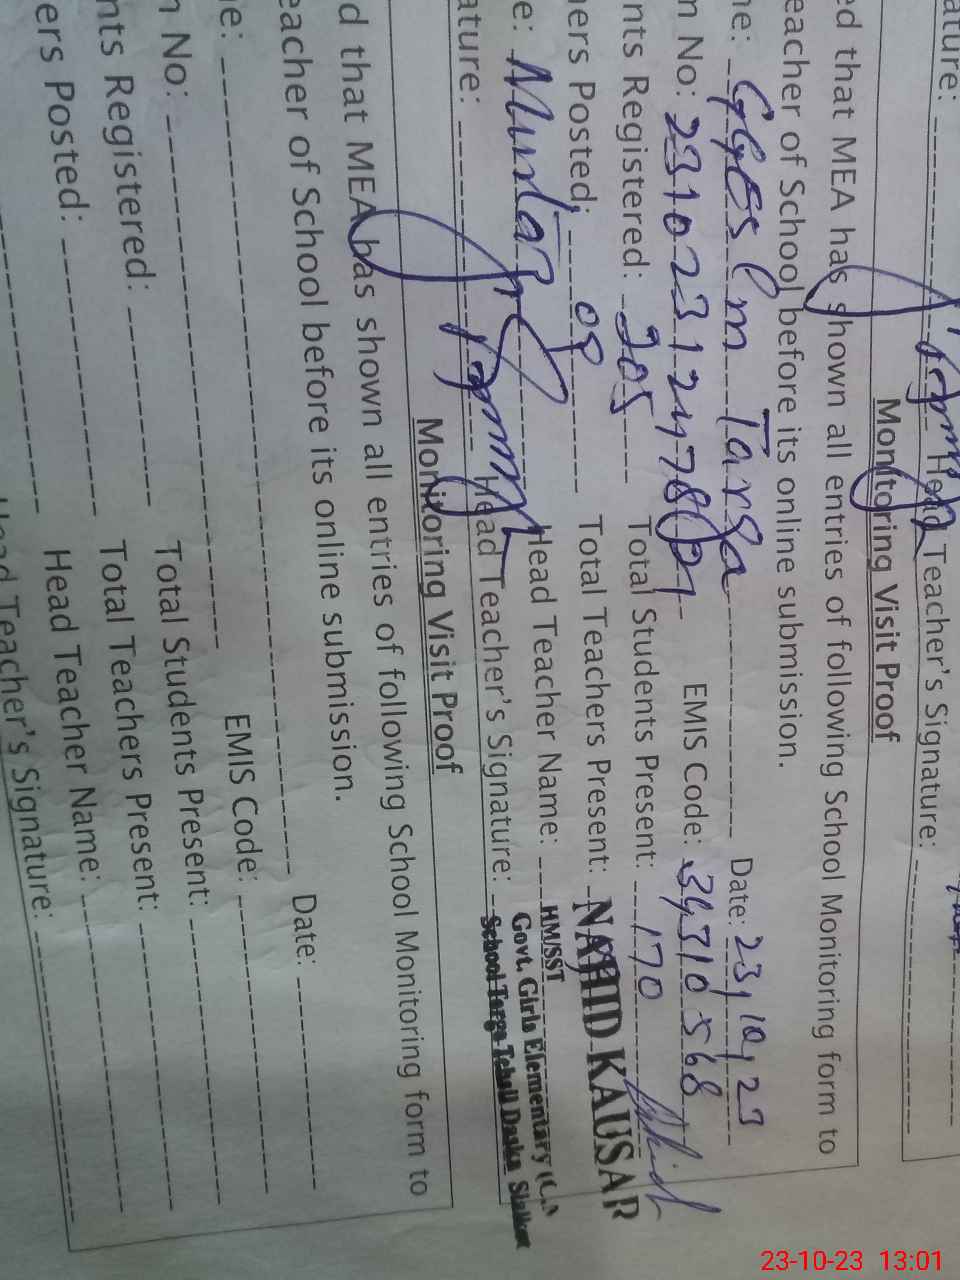 ature:
Head Teacher's Signature:
Monitoring Visit Proof
ed that MEA has shown all entries of following School Monitoring form to
eacher of School before its online submission.
ne: GGES(m Targa Date: 23/10/23
n No: EMIS Code: 34310568
nts Registered: 205 Total Students Present: 170
ers Posted: 08 Total Teachers Present: NAHID KAUSAR
e: Head Teacher Name: HM/SST
Govt. Girls Elementary
ature: Head Teacher's Signature: School Targa Tehsil Daska Sialkot
Monitoring Visit Proof
d that MEA has shown all entries of following School Monitoring form to
eacher of School before its online submission.
ne: Date:
n No: EMIS Code:
nts Registered: Total Students Present:
ers Posted: Total Teachers Present:
Head Teacher Name:
Head Teacher's Signature:
23-10-23 13:01